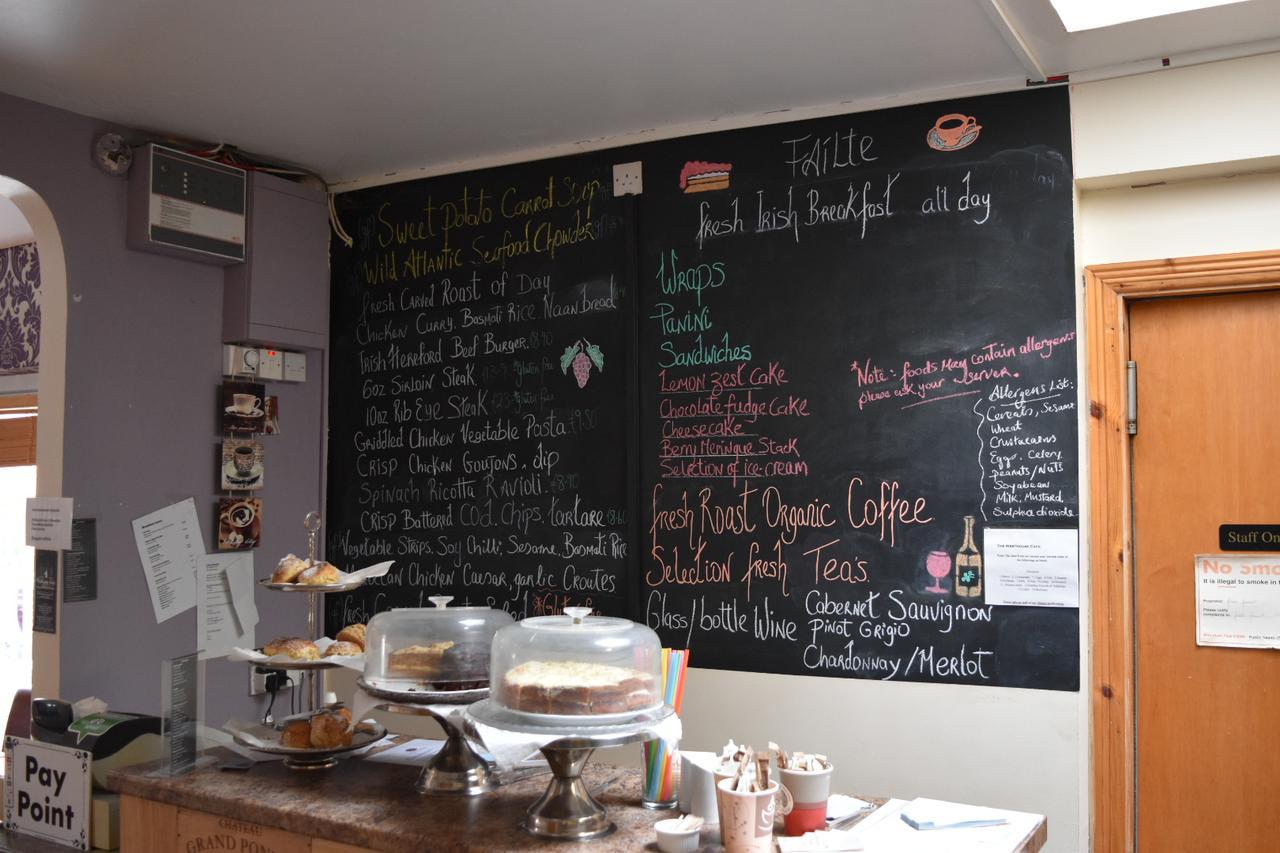 Sweet Potato Carrot Soup
Wild Atlantic Seafood Chowder
Fresh Carved Roast of Day
Chicken Curry. Basmati Rice. Naan bread
Irish Hereford Beef Burger.
6oz Sirloin Steak *Gluten free
10oz Rib Eye Steak *gluten free
Griddled Chicken Vegetable Pasta
Crisp Chicken Goujons. dip
Spinach Ricotta Ravioli.
Crisp Battered Cod. Chips. tartare
Vegetable Strips. Soy Chilli. Sesame. Basmati Rice
Chicken Caesar, garlic Croutes
FAILTE
fresh Irish Breakfast all day
Wraps
Panini
Sandwiches
Lemon zest Cake
Chocolate fudge Cake
Cheesecake
Berry Meringue Stack
Selection of ice-cream
*Note: foods May contain allergens
please ask your server.
Allergens List:
Cereals, Sesame
Wheat
Crustaceans
Eggs. Celery.
peanuts/Nuts
Soyabean
Milk, Mustard
Sulpha dioxide
Fresh Roast Organic Coffee.
Selection fresh Tea's.
Glass/bottle Wine
Cabernet Sauvignon
Pinot Grigio
Chardonnay/Merlot
Pay
Point
CHATEAU
Staff On
No Smo
It is illegal to smoke in